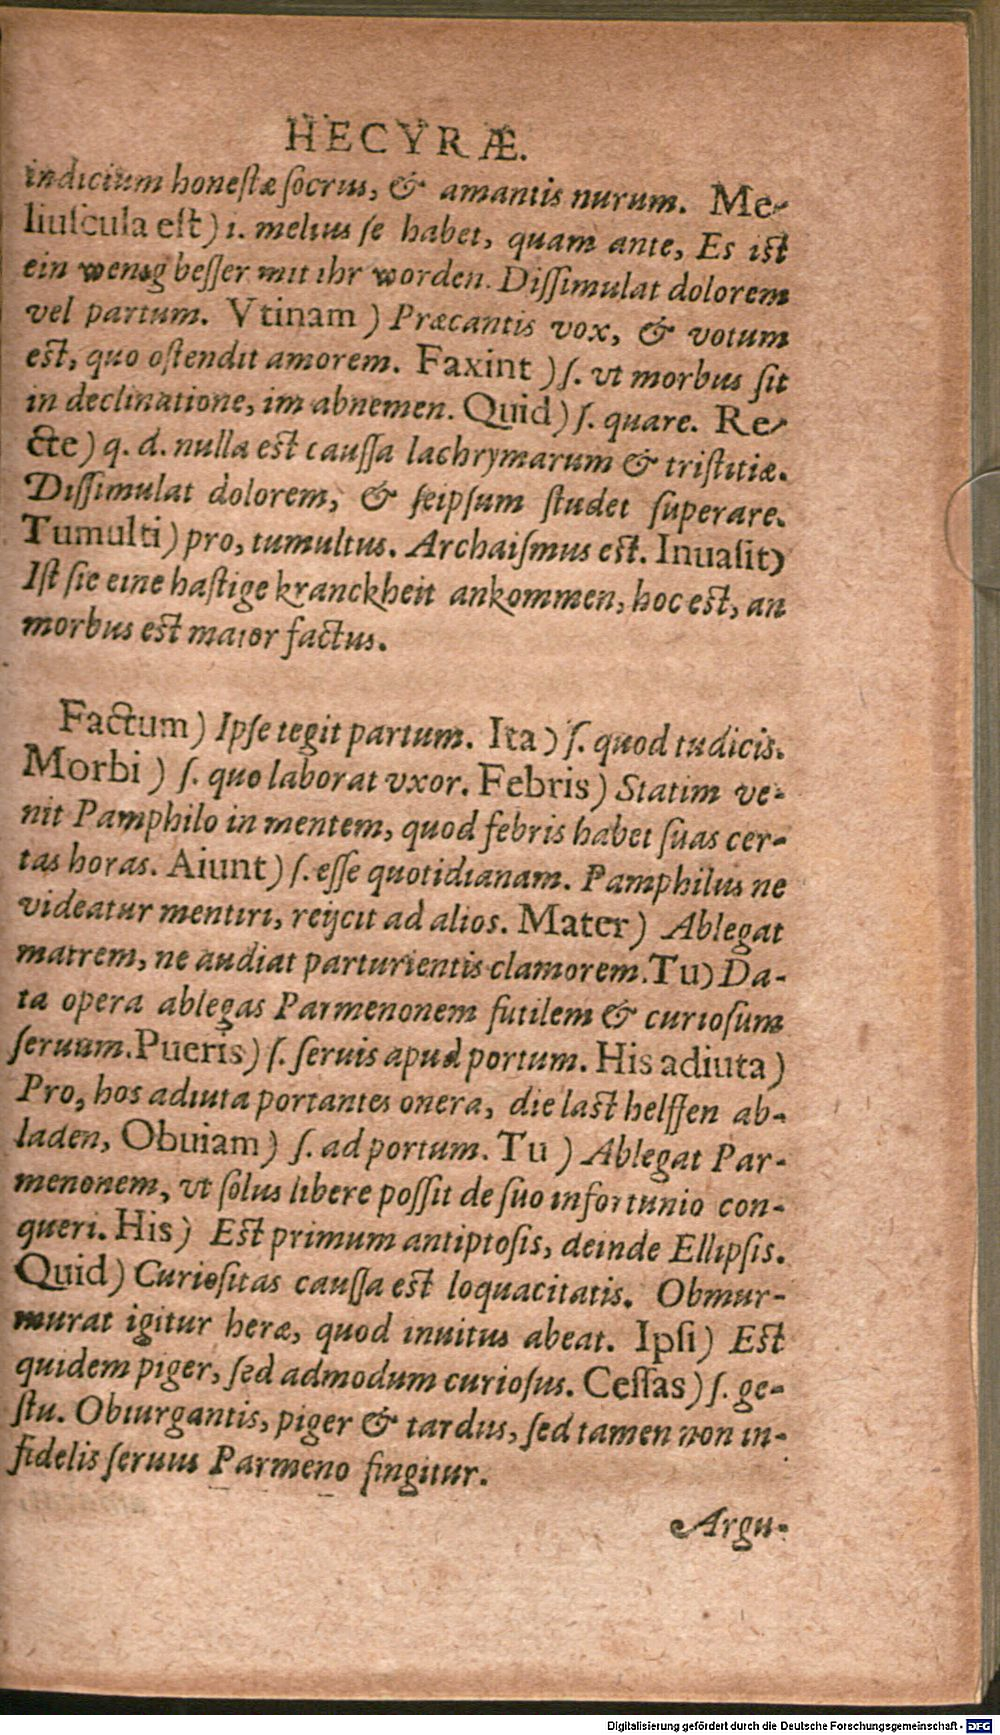 HECYRÆ.
indicium honestæ socrus, & amantis nurum. Me-
liuscula est) i. melius se habet, quam ante, Es ist
ein wenig besser mit ihr worden. Dissimulat dolorem
vel partum. Vtinam) Præcantis vox, & votum
est, quo ostendit amorem. Faxint) s. vt morbus sit
in declinatione, im abnemen. Quid) s. quare. Re-
cte) q. d. nulla est caussa lachrymarum & tristitiæ.
Dissimulat dolorem, & seipsum studet superare.
Tumulti) pro, tumultus. Archaismus est. Inuasit)
Ist sie eine hastige kranckheit ankommen, hoc est, an
morbus est maior factus.
Factum) Ipse tegit partum. Ita) s. quod tu dicis.
Morbi) s. quo laborat vxor. Febris) Statim ve-
nit Pamphilo in mentem, quod febris habet suas cer-
tas horas. Aiunt) s. esse quotidianam. Pamphilus ne
videatur mentiri, reijcit ad alios. Mater) Ablegat
matrem, ne audiat parturientis clamorem. Tu) Da-
ta opera ablegas Parmenonem futilem & curiosum
seruum. Pueris) s. seruis apud portum. His adiuta)
Pro, hos adiuta portantes onera, die last helffen ab-
laden, Obuiam) s. ad portum. Tu) Ablegat Par-
menonem, vt solus libere possit de suo infortunio con-
queri. His) Est primum antiptosis, deinde Ellipsis.
Quid) Curiositas caussa est loquacitatis. Obmur-
murat igitur heræ, quod inuitus abeat. Ipsi) Est
quidem piger, sed admodum curiosus. Cessas) s. ge-
stu. Obiurgantis, piger & tardus, sed tamen non in-
fidelis seruus Parmeno fingitur.
Argu-
Digitalisierung gefördert durch die Deutsche Forschungsgemeinschaft - DFG